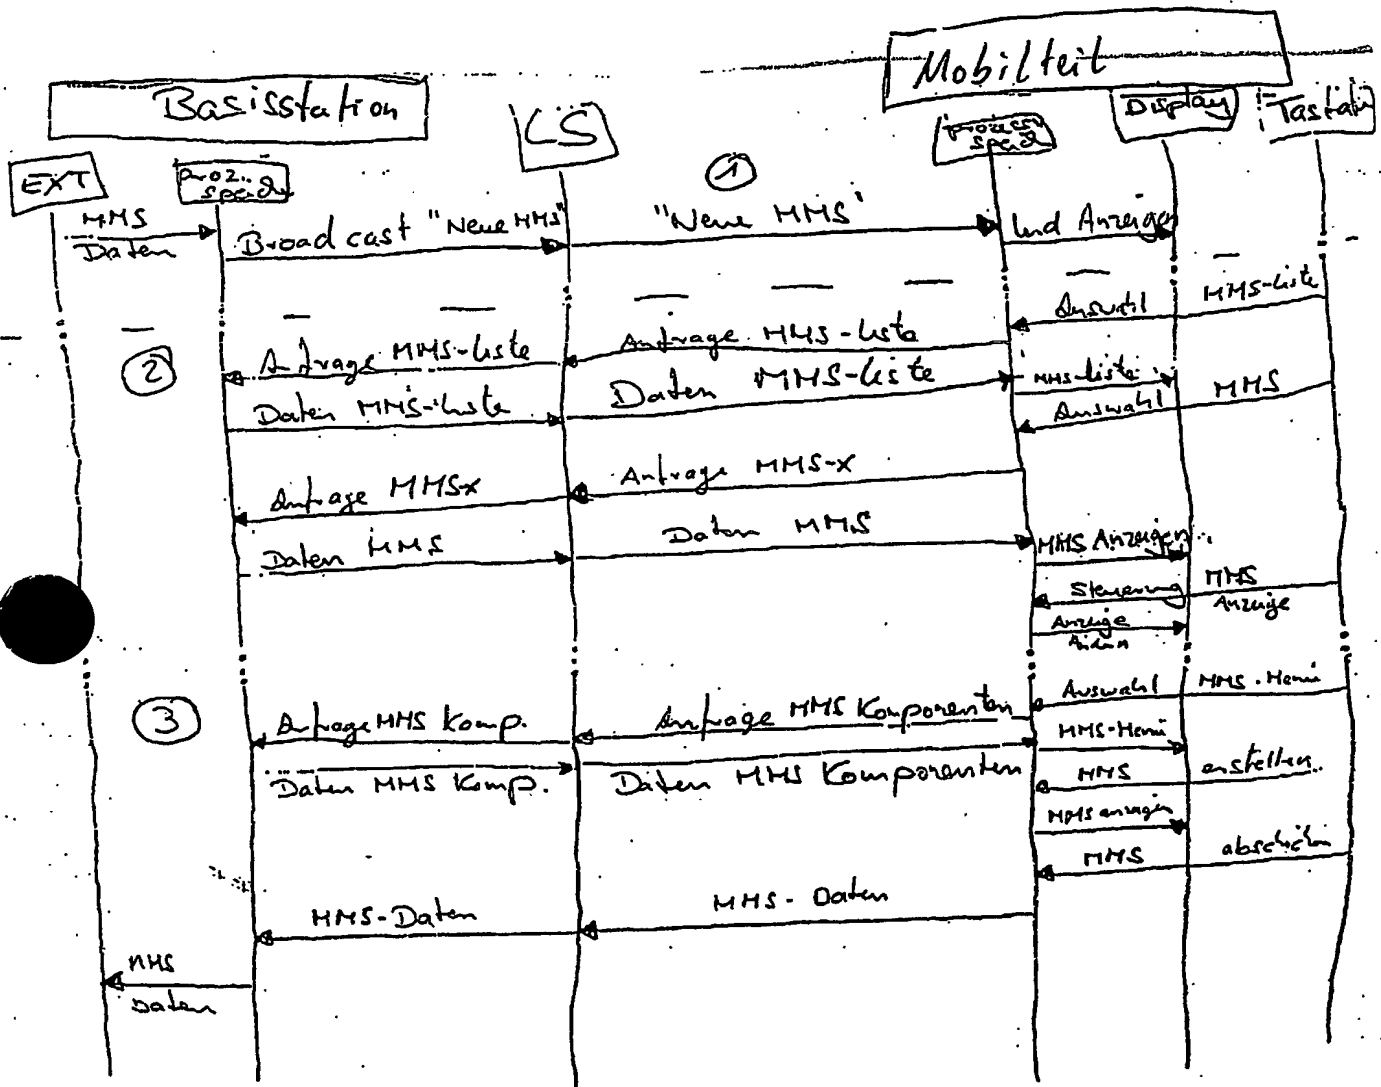 Mobilteil
Basisstation
LS
Display
EXT
①
MMS
Daten
Broadcast "Neue MMS"
"Neue MMS"
Anzeigen
Auswahl MMS-Liste
②
Anfrage MMS-Liste
Anfrage MMS-Liste
Daten MMS-Liste
Daten MMS-Liste
MMS-Liste
Auswahl MMS
Anfrage MMS-x
Anfrage MMS-x
Daten MMS
Daten MMS
MMS Anzeigen
Steuerung MMS
Anzeige
Anzeige
③
Auswahl MMS-Menü
Anfrage MMS Komp.
Anfrage MMS Komponenten
MMS-Menü
Daten MMS Komp.
Daten MMS Komponenten
MMS erstellen
MMS anzeigen
MMS
MMS-Daten
MMS-Daten
MMS
Daten